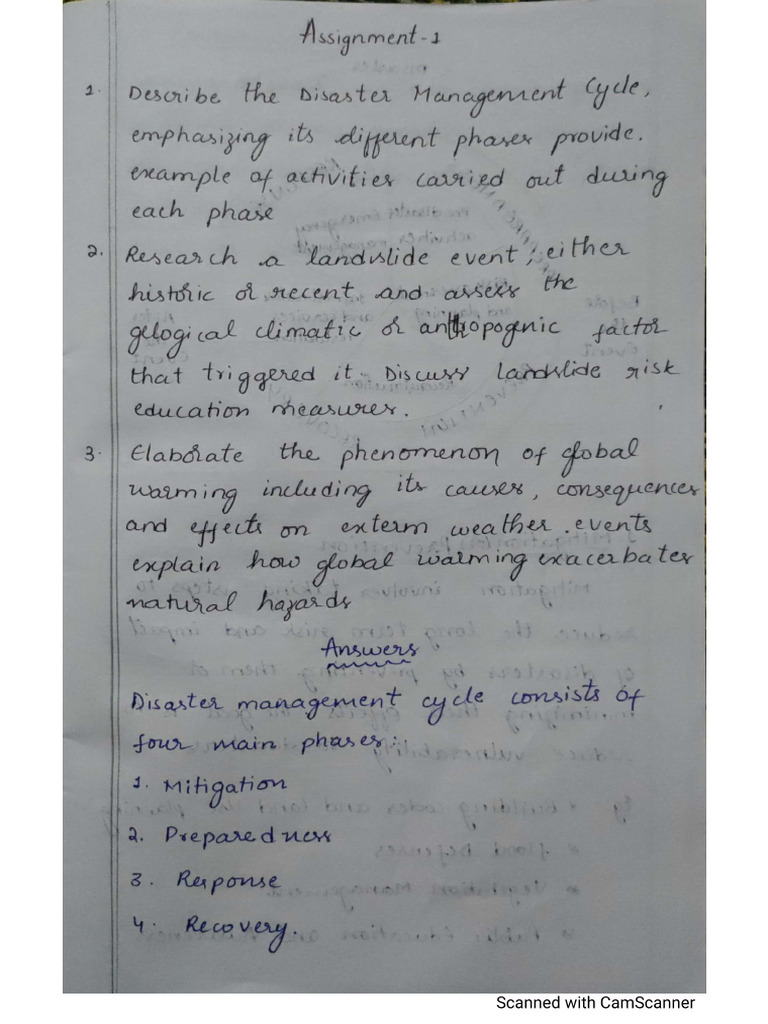 Assignment-1
1. Describe the Disaster Management Cycle,
emphasizing its different phases provide.
example of activities carried out during
each phase
2. Research a landslide event, either
historic or recent and assess the
gelogical climatic or anthopogenic factor
that triggered it. Discuss landslide risk
education measures.
3. Elaborate the phenomenon of global
warming including its causes, consequences
and effects on exterm weather.events
explain how global warming exacerbates
natural hazards
Answers
Disaster management cycle consists of
four main phases:
1. Mitigation
2. Preparedness
3. Response
4. Recovery.
Scanned with CamScanner